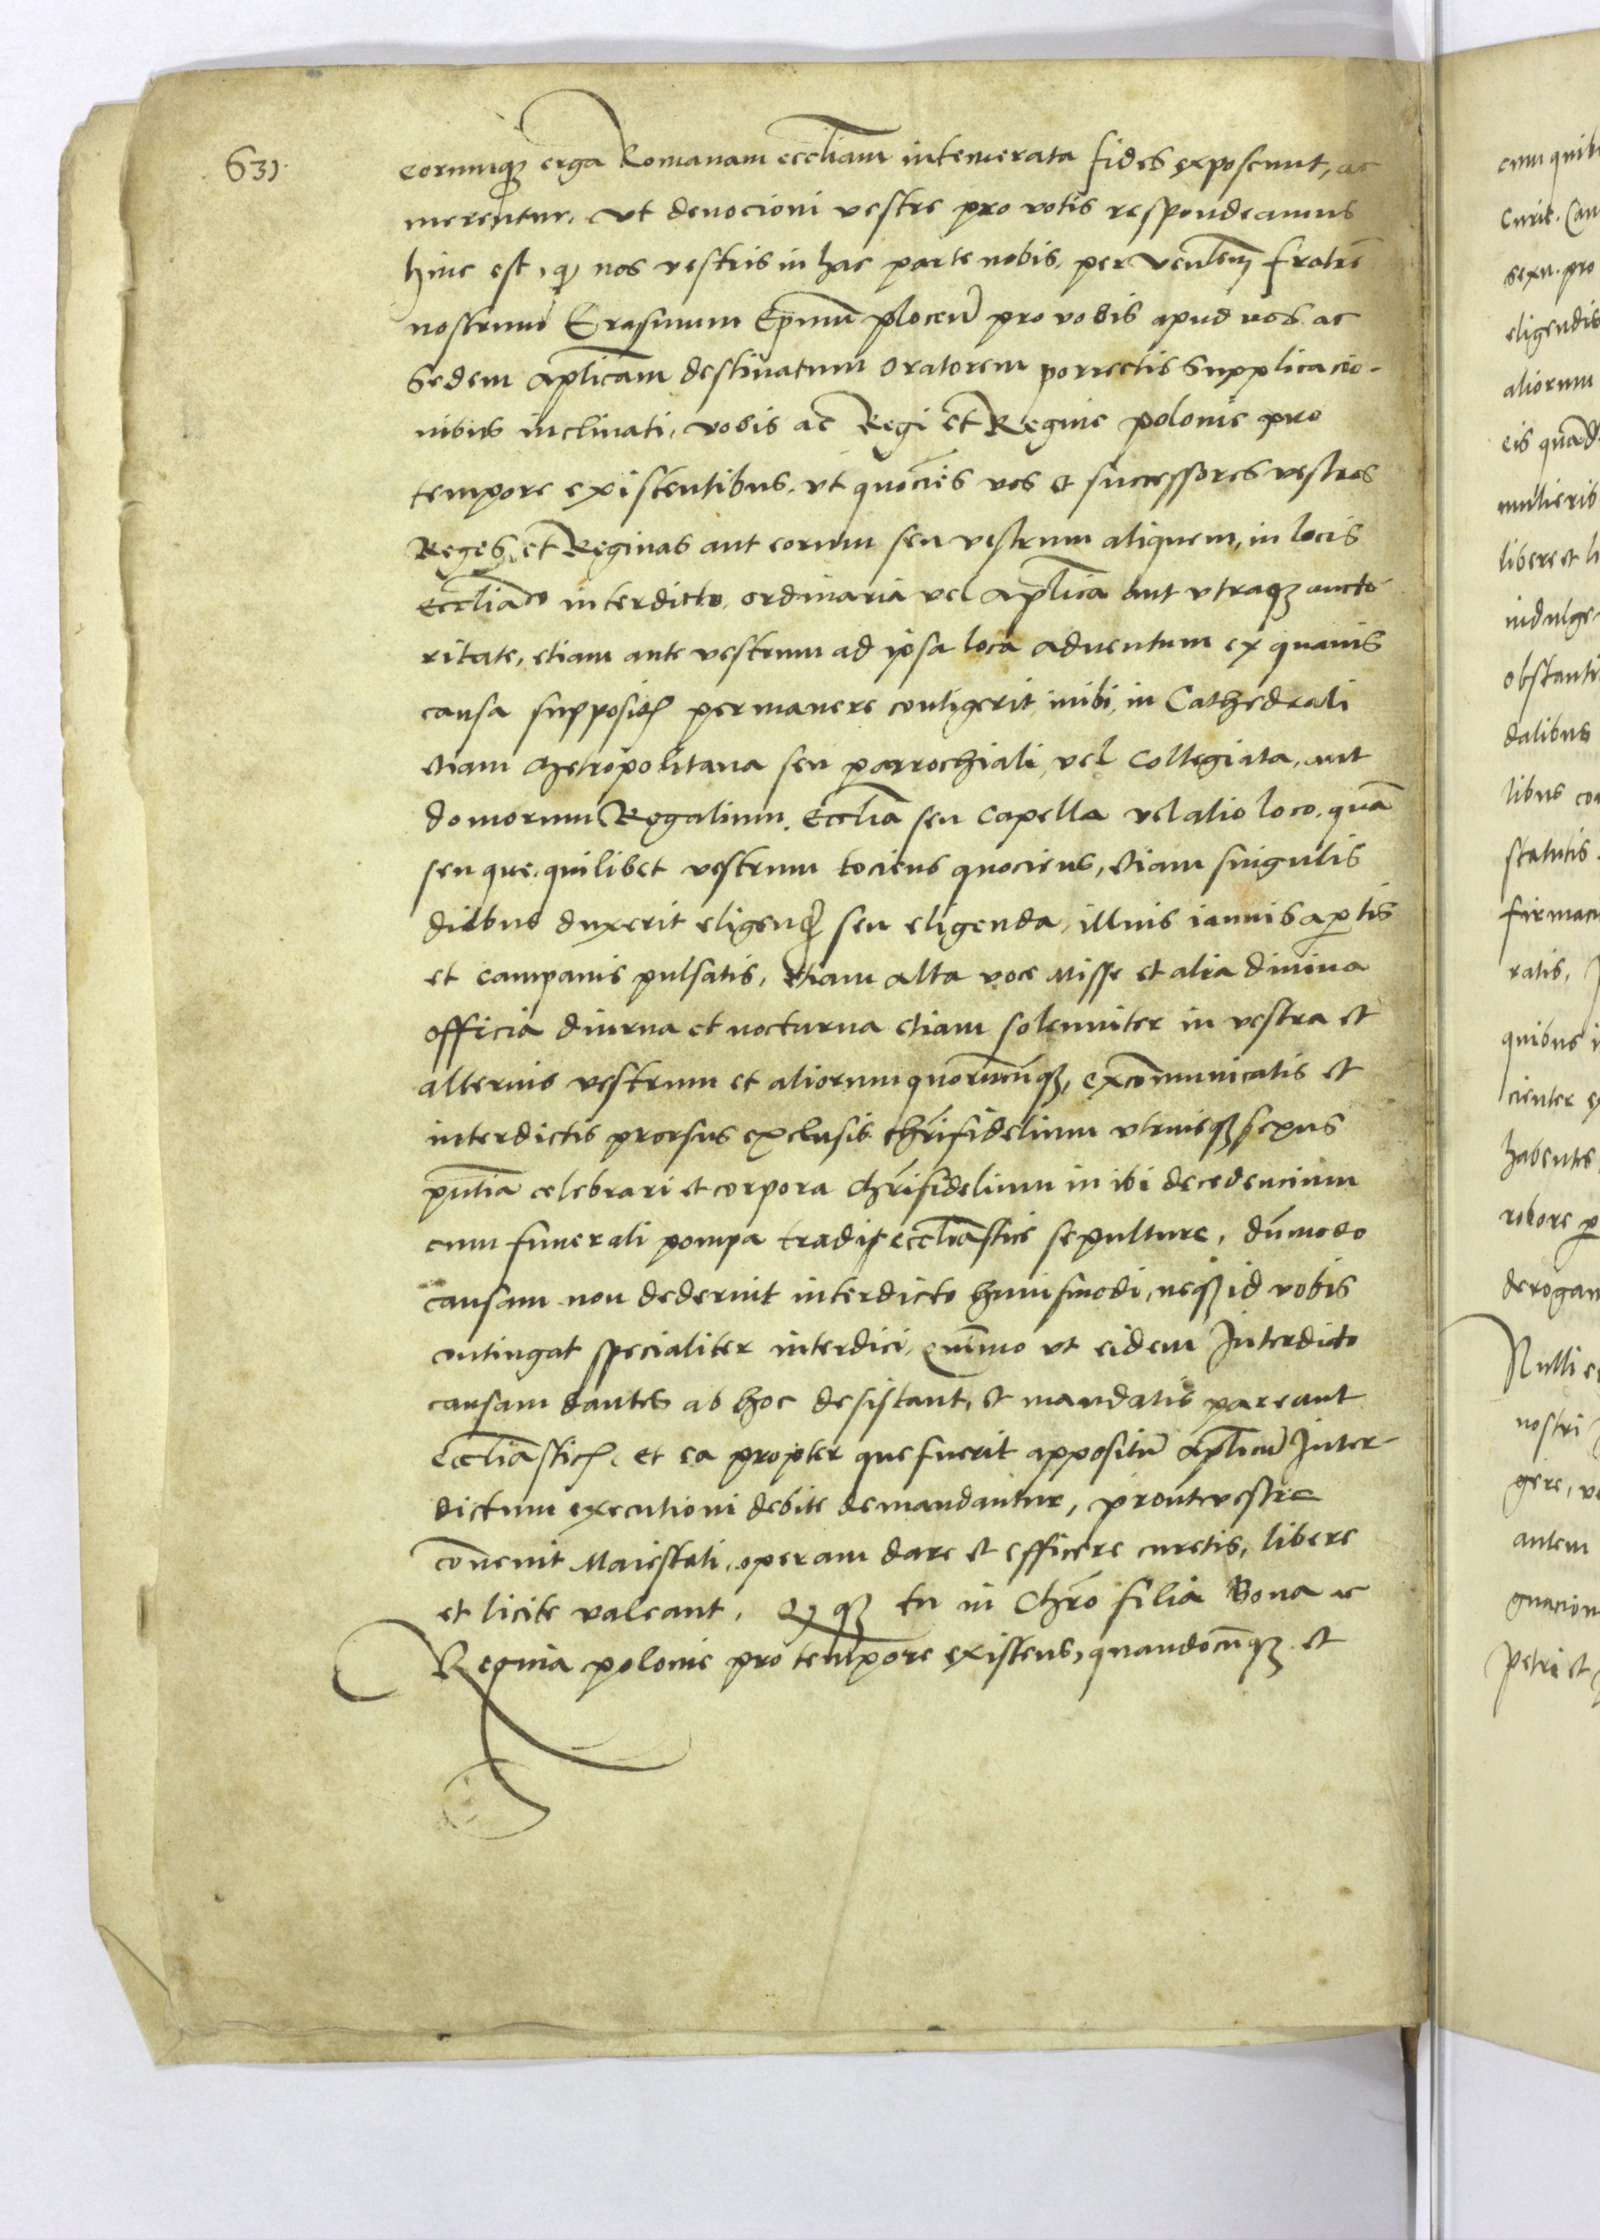 631.
eorumq3 erga Romanam eccl̄iam intemerata fides exposcunt, ac
merentur. vt deuocioni vestre pro votis respondeamus
hinc est, q̨ nos vestris in hac parte nobis, per Ven̄lem fratrē
nostrum Erasmum Ep̄mum plocen̄ pro vobis apud nos ac
Sedem Ap̄licam destinatum Oratorem porrectis Supplicacio-
nibus inclinati, vobis ac Regi et Regine polonie pro
tempore existentibus. vt quociēs vos et successores vestros
Reges, et Reginas aut eorum seu vestrum aliquem, in locis
Eccl̄iaco interdicto, ordinaria vel Ap̄lica aut vtraq3 aucto
ritate, etiam ante vestrum ad ipsa loca aduentum ex quauis
causa supposit permanere contigerit, inibi, in Cathedrali
etiam Metropolitana seu parrochiali, vel Collegiata, aut
domorum Regalium. Eccl̄ia seu Capella vel alio loco. quā
seu que. quilibet vestrum tociens quociens, etiam singulis
diebus duxerit eligend̄ seu eligenda, illius ianuis ap̄tis
et campanis pulsatis, etiam alta voce Misse et alia diuina
officia diurna et nocturna etiam solemniter in vestra et
alterius vestrum et aliorum quorūcūq3, excōmunicatis et
interdictis prorsus exclusis chr̄ifidelium vtriusq3 sexus
p̄ntia celebrari et corpora Chr̄ifidelium inibi decedencium
cum funerali pompa tradi eccl̄iastice sepulture, dūmodo
causam non dederint interdicto huiusmodi, neq3 id vobis
contingat specialiter interdici, quīmmo vt eidem Interdicto
causam dantes ab hoc desistant, et mandatis pareant
Eccl̄iastic, et ea propter que fuerit appositū Ap̄licū Inter-
dictum executioni debite demandantur, prout vestre
cōuenit Maiestati, operam dare et efficere curetis, libere
et licite valeant, Q q3 tu in Chr̄o filia Bona ac
Regina polonie pro tempore existens, quandocūq3 et
cum quib
Curie. Cau
sexu. pro
eligendis
aliorum
eis quād
mulieris
libere et l
indulge
obstanti
dalibus
libus co
statutis.
firmac
ratis,
quibus i
cienter e
habentes
robore p
derogan
Nulli e
nostri
gere, v
autem
gnacion
Petri et